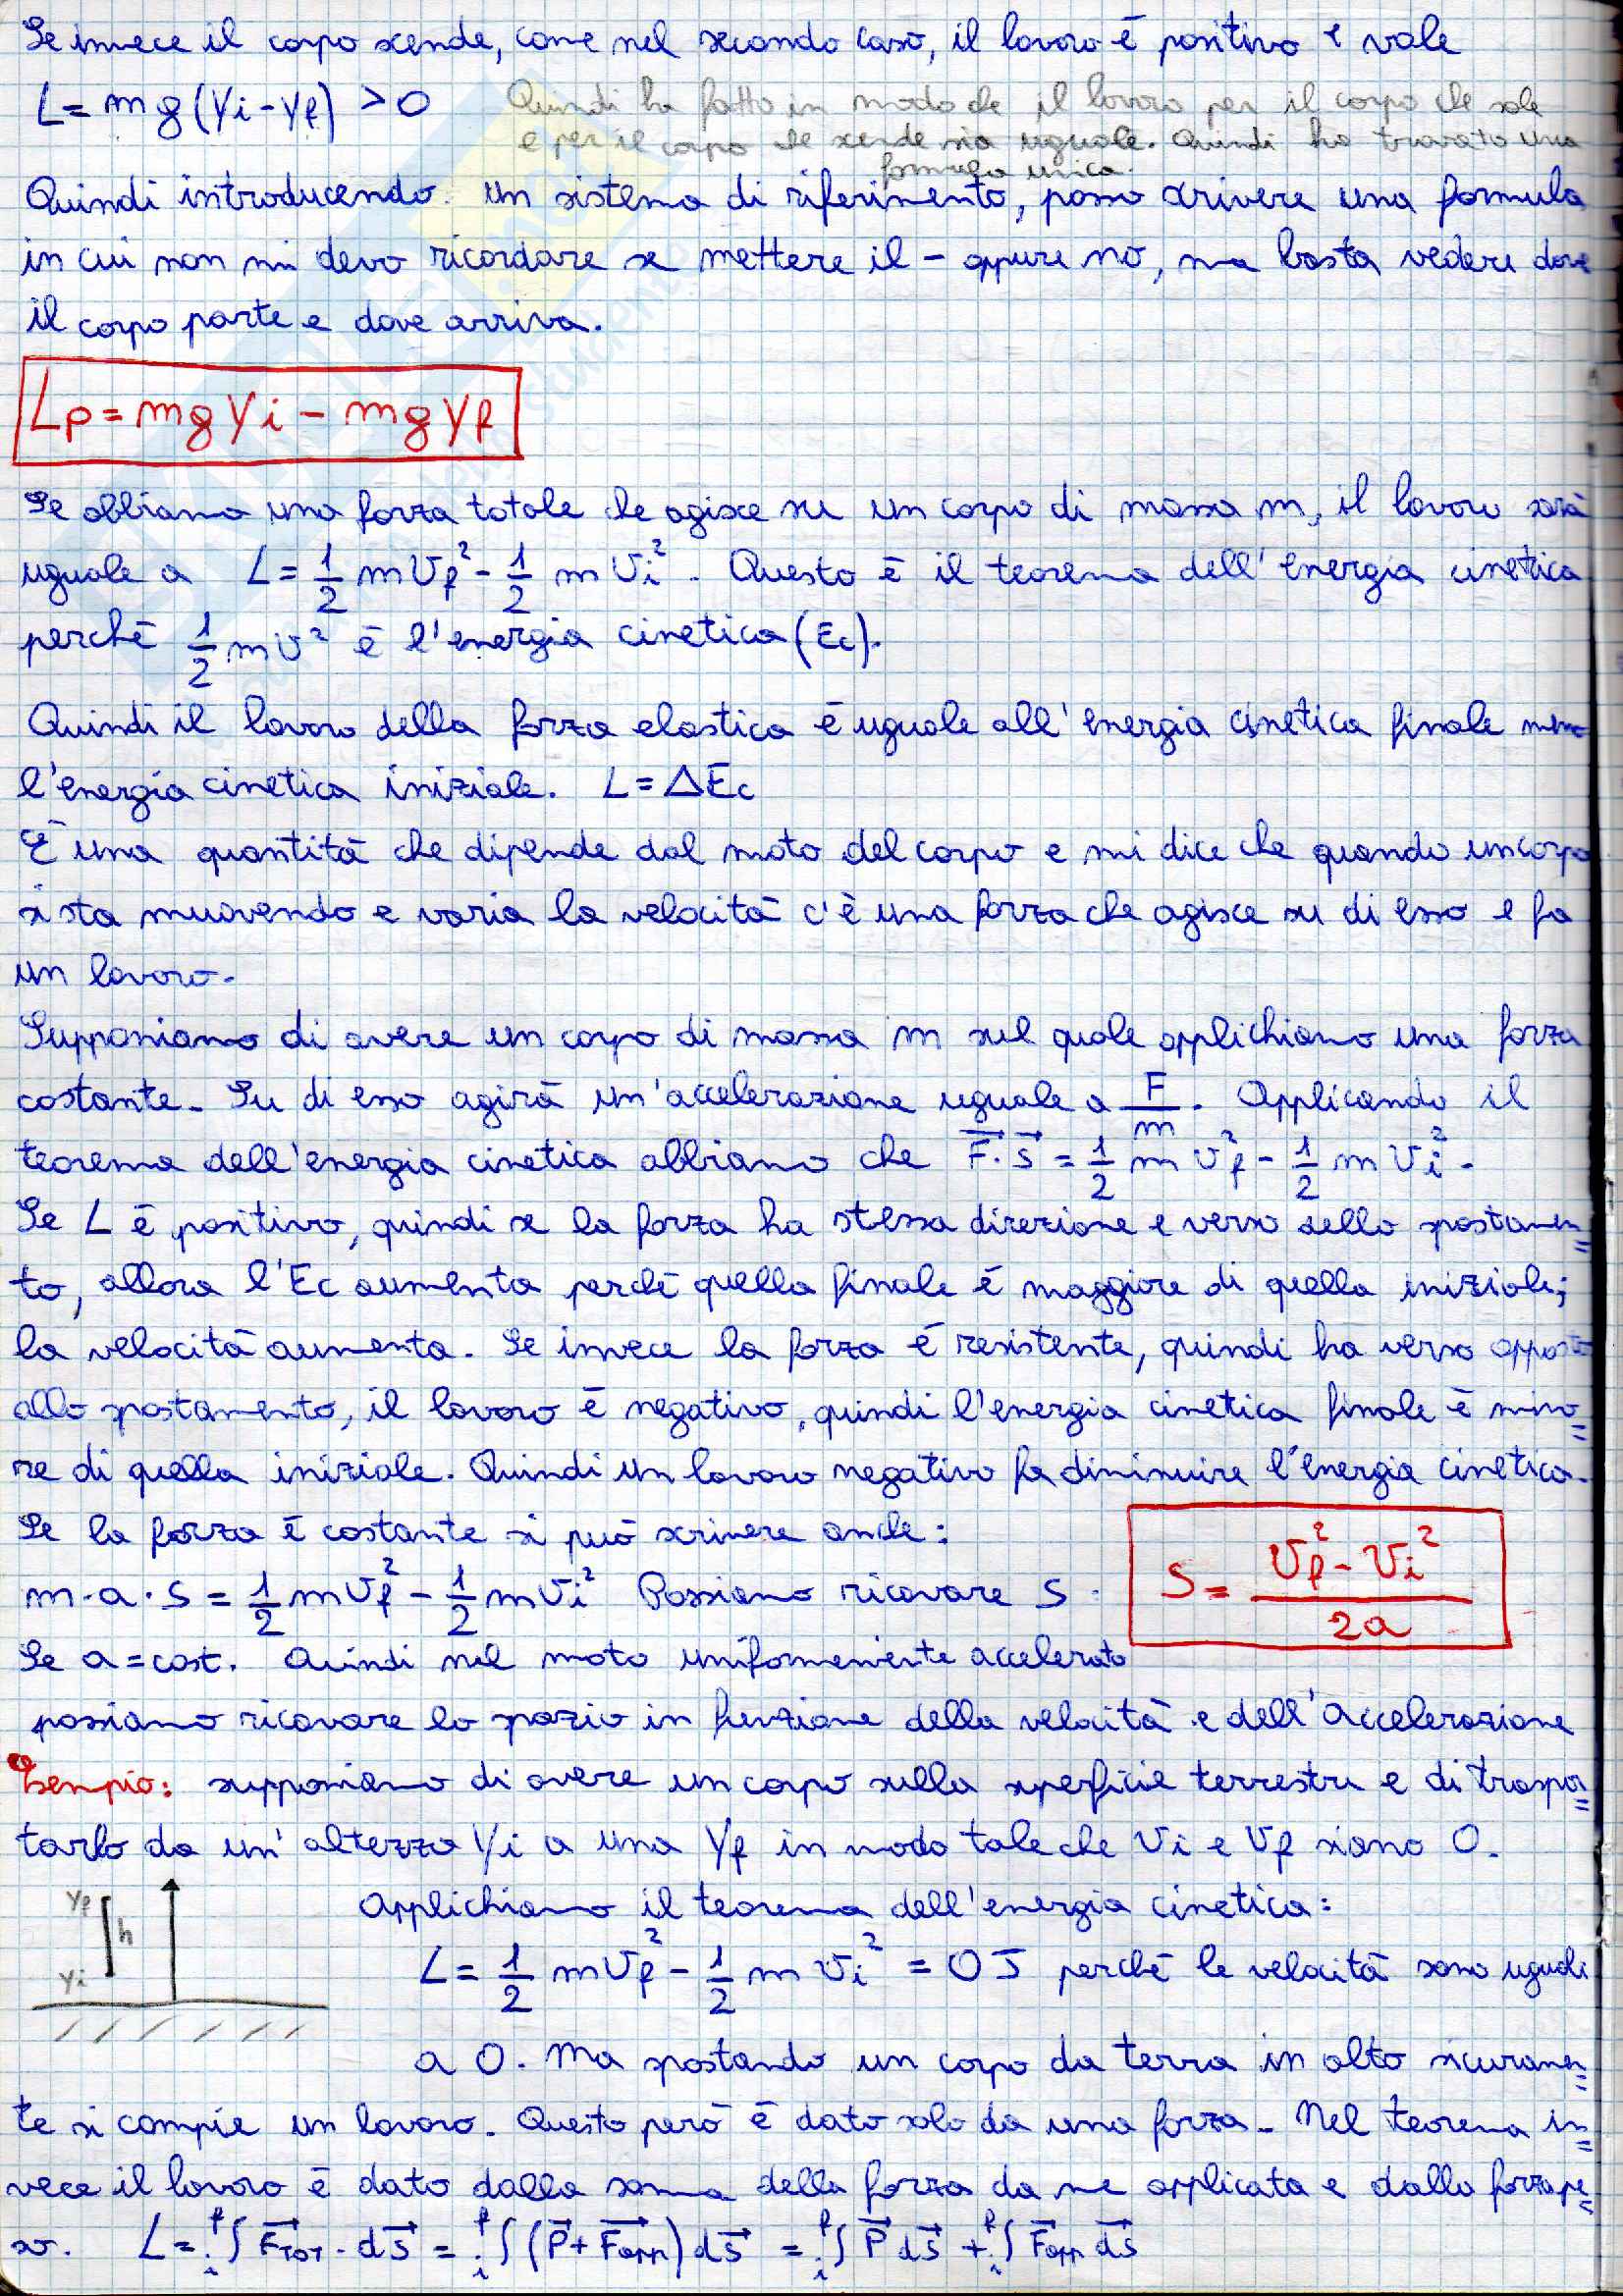 Se invece il corpo scende, come nel secondo caso, il lavoro è positivo e vale
L = mg(yi - yf) > 0
Quindi ha fatto in modo che il lavoro per il corpo che sale
e per il corpo che scende sia uguale. Quindi ha trovato una
formula unica.
Quindi introducendo un sistema di riferimento, posso scrivere una formula
in cui non mi devo ricordare se mettere il - oppure no, ma basta vedere dove
il corpo parte e dove arriva.
Lp = mgyi - mgyf
Se abbiamo una forza totale che agisce su un corpo di massa m, il lavoro sarà
uguale a L = 1/2 mVf² - 1/2 mVi². Questo è il teorema dell'energia cinetica
perchè 1/2 mv² è l'energia cinetica (Ec).
Quindi il lavoro della forza elastica è uguale all'energia cinetica finale meno
l'energia cinetica iniziale. L = ΔEc
È una quantità che dipende dal moto del corpo e mi dice che quando un corpo
si sta muovendo e varia la velocità c'è una forza che agisce su di esso e fa
un lavoro.
Supponiamo di avere un corpo di massa m sul quale applichiamo una forza
costante. Su di esso agirà un'accelerazione uguale a F/m. Applicando il
teorema dell'energia cinetica abbiamo che F⃗·s⃗ = 1/2 m vf² - 1/2 m Vi².
Se L è positivo, quindi se la forza ha stessa direzione e verso dello spostamen=
to, allora l'Ec aumenta perchè quella finale è maggiore di quella iniziale;
la velocità aumenta. Se invece la forza è resistente, quindi ha verso opposto
allo spostamento, il lavoro è negativo, quindi l'energia cinetica finale è mino=
re di quella iniziale. Quindi un lavoro negativo fa diminuire l'energia cinetica.
Se la forza è costante si può scrivere anche:
m·a·s = 1/2 mVf² - 1/2 mVi² Possiamo ricavare S.
S = (Vf² - Vi²)/2a
Se a = cost. Quindi nel moto uniformemente accelerato
possiamo ricavare lo spazio in funzione della velocità e dell'accelerazione
Esempio: supponiamo di avere un corpo sulla superficie terrestre e di traspor=
tarlo da un'altezza yi a una yf in modo tale che Vi e Vf siano 0.
yf
h
yi
Applichiamo il teorema dell'energia cinetica:
L = 1/2 mVf² - 1/2 m Vi² = 0 J perchè le velocità sono uguali
a 0. Ma spostando un corpo da terra in alto sicuramen=
te si compie un lavoro. Questo però è dato solo da una forza. Nel teorema in=
vece il lavoro è dato dalla somma della forza da me applicata e dalla forza pe=
so. L = i∫f F⃗TOT · ds⃗ = i∫f (P⃗ + F⃗app) ds⃗ = i∫f P⃗ ds⃗ + i∫f F⃗app ds⃗